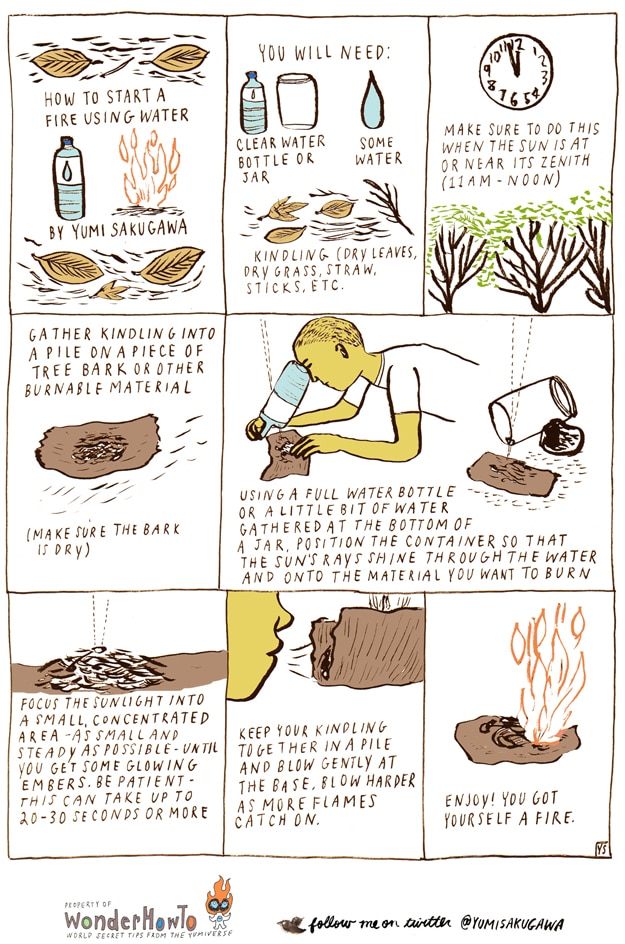 HOW TO START A
FIRE USING WATER
BY YUMI SAKUGAWA
YOU WILL NEED:
CLEAR WATER
BOTTLE OR
JAR
SOME
WATER
KINDLING (DRY LEAVES,
DRY GRASS, STRAW,
STICKS, ETC.
11 12 1
10 2
9 3
8 4
7 6 5
MAKE SURE TO DO THIS
WHEN THE SUN IS AT
OR NEAR ITS ZENITH
(11AM - NOON)
GATHER KINDLING INTO
A PILE ON A PIECE OF
TREE BARK OR OTHER
BURNABLE MATERIAL
(MAKE SURE THE BARK
IS DRY)
USING A FULL WATER BOTTLE
OR A LITTLE BIT OF WATER
GATHERED AT THE BOTTOM OF
A JAR, POSITION THE CONTAINER SO THAT
THE SUN'S RAYS SHINE THROUGH THE WATER
AND ONTO THE MATERIAL YOU WANT TO BURN
FOCUS THE SUNLIGHT INTO
A SMALL, CONCENTRATED
AREA - AS SMALL AND
STEADY AS POSSIBLE - UNTIL
YOU GET SOME GLOWING
EMBERS. BE PATIENT -
THIS CAN TAKE UP TO
20-30 SECONDS OR MORE
KEEP YOUR KINDLING
TOGETHER IN A PILE
AND BLOW GENTLY AT
THE BASE, BLOW HARDER
AS MORE FLAMES
CATCH ON.
ENJOY! YOU GOT
YOURSELF A FIRE.
YS
PROPERTY OF
WonderHowTo
WORLD SECRET TIPS FROM THE YUMIVERSE
follow me on twitter @YUMISAKUGAWA